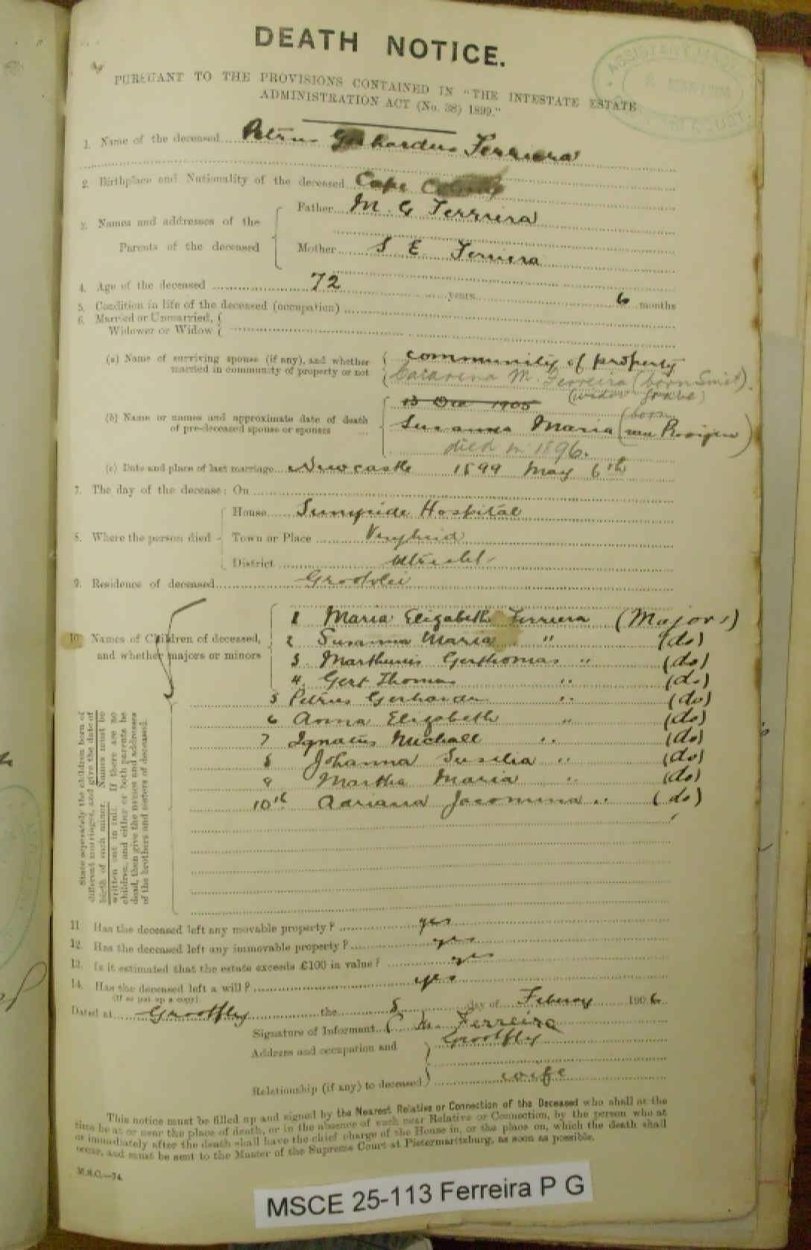 DEATH NOTICE.
PURSUANT TO THE PROVISIONS CONTAINED IN "THE INTESTATE ESTATE
ADMINISTRATION ACT (No. 38) 1899."
1. Name of the deceased Petrus Gerhardus Ferreira
2. Birthplace and Nationality of the deceased Cape Colony
3. Names and addresses of the Parents of the deceased
Father M. G Ferreira
Mother S E Ferreira
4. Age of the deceased 72 years 6 months
5. Condition in life of the deceased (occupation)
6. Married or Unmarried,
Widower or Widow
(a) Name of surviving spouse (if any), and whether married in community of property or not
community of property
Catarina M. Ferreira (born Smit).
(b) Name or names and approximate date of death of pre-deceased spouse or spouses
13 Dec 1905
Susanna Maria (born van Rooijen)
died in 1896.
(c) Date and place of last marriage Newcastle 1899 May 6th
7. The day of the decease: On
8. Where the person died
House Sunnyside Hospital
Town or Place Vryheid
District Utrecht
9. Residence of deceased Grootvlei
10. Names of Children of deceased, and whether majors or minors
1 Maria Elizabeth Ferreira (Majors)
2 Susanna Maria " (do)
3 Marthinus Gerthomas " (do)
4 Gert Thomas " (do)
5 Petrus Gerhardus " (do)
6 Anna Elizabeth " (do)
7 Ignatius Michall " (do)
8 Johanna Susilia " (do)
9 Martha Maria " (do)
10th Adriana Jacomina " (do)
State separately the children born of
different marriages, and give the date of
birth of each minor. Names must be
written out in full. If there are no
children, and either or both parents be
dead, then give the names and addresses
of the brothers and sisters of deceased.
11. Has the deceased left any movable property? yes
12. Has the deceased left any immovable property? yes
13. Is it estimated that the estate exceeds £100 in value? yes
14. Has the deceased left a will? yes
(If so put up a copy)
Dated at Grootfly the 8 day of 1906
Signature of Informant C M. Ferreira
Address and occupation Grootfly
Relationship (if any) to deceased wife
This notice must be filled up and signed by the Nearest Relative or Connection of the Deceased who shall at the
time be at or near the place of death, or in the absence of such near Relative or Connection, by the person who at
or immediately after the death shall have the chief charge of the House in, or the place on, which the death shall
occur, and must be sent to the Master of the Supreme Court at Pietermaritzburg, as soon as possible.
M.S.C.—74.
MSCE 25-113 Ferreira P G